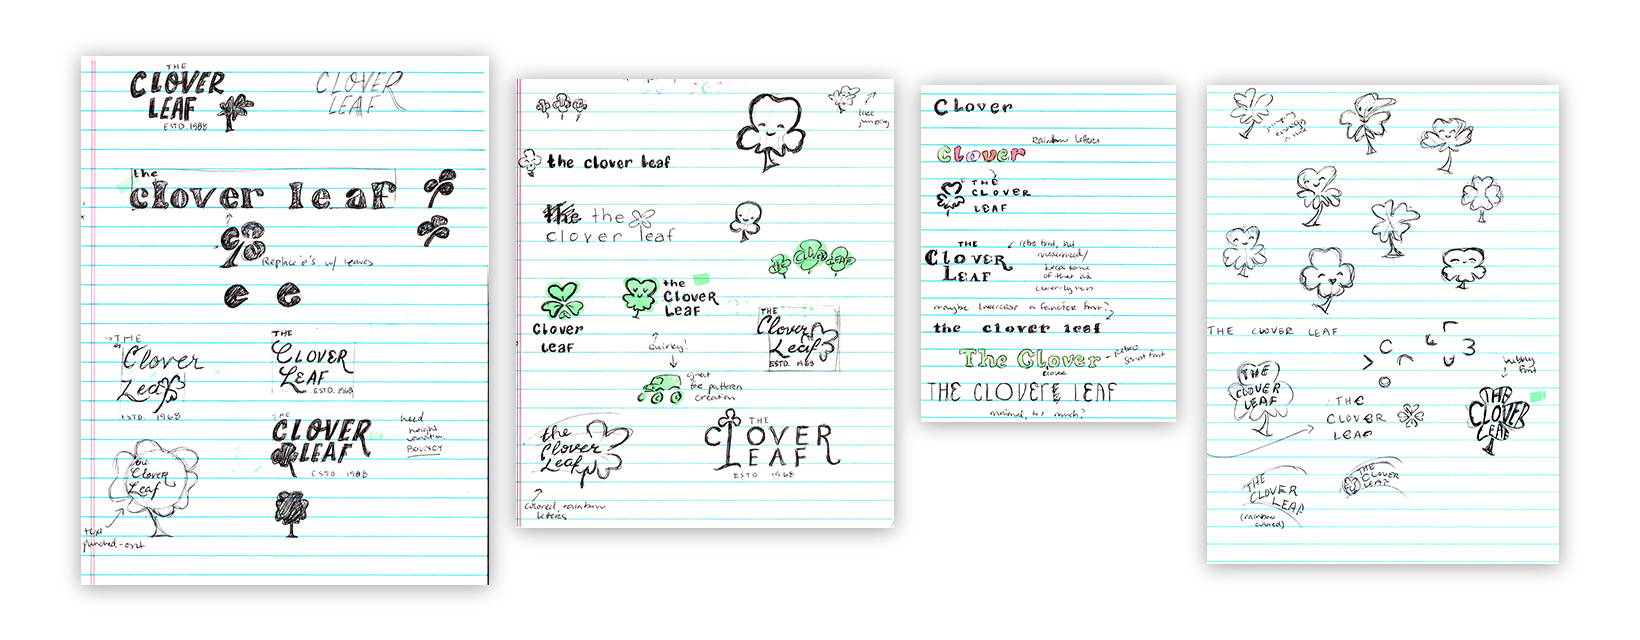 THE
CLOVER
LEAF
ESTD. 1988
CLOVER
LEAF
the
clover leaf
Replace e's w/ leaves
e e
THE
Clover
Leaf
ESTD. 1968
THE
CLOVER
LEAF
ESTD. 1968
THE
CLOVER
LEAF
ESTD 1988
need
height
variation.
BOUNCY
the
Clover
Leaf
text
punched-out
like
jumping
the clover leaf
the the
clover leaf
THE CLOVER LEAF
Clover
leaf
the
CLOVER
Leaf
quirky!
great
for pattern
creation
THE
Clover
Leaf
ESTD. 1968
the
Clover
Leaf
colored, rainbow
letters
THE
CLOVER
LEAF
ESTD 1968
Clover
rainbow letters
Clover
THE
CLOVER
LEAF
THE
CLOVER
LEAF
retro font, but
modernized/
keeps some
of that old
maybe lowercase a fancier font?
the clover leaf
The Clover
clover
retro
script font
THE CLOVER LEAF
minimal, too much?
THE CLOVER LEAF
THE
CLOVER
LEAF
THE
CLOVER
LEAF
bubbly
font
THE
CLOVER
LEAF
THE
CLOVER
LEAF
(rainbow
colored)
THE
CLOVER
LEAF